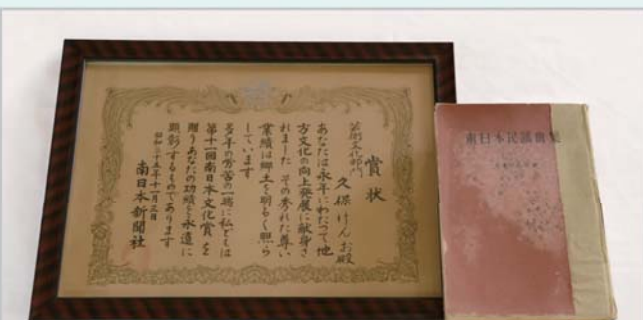 賞状
芸術文化部門
久保けんお殿
あなたは永年にわたって地
方文化の向上発展に献身さ
れました その秀れた尊い
業績は郷土を明るく照ら
しています
多年の労苦の一端に私どもは
第十一回南日本文化賞を
贈りあなたの功績を永遠に
顕彰するものであります
昭和三十五年十一月三日
南日本新聞社
南日本民謡曲集